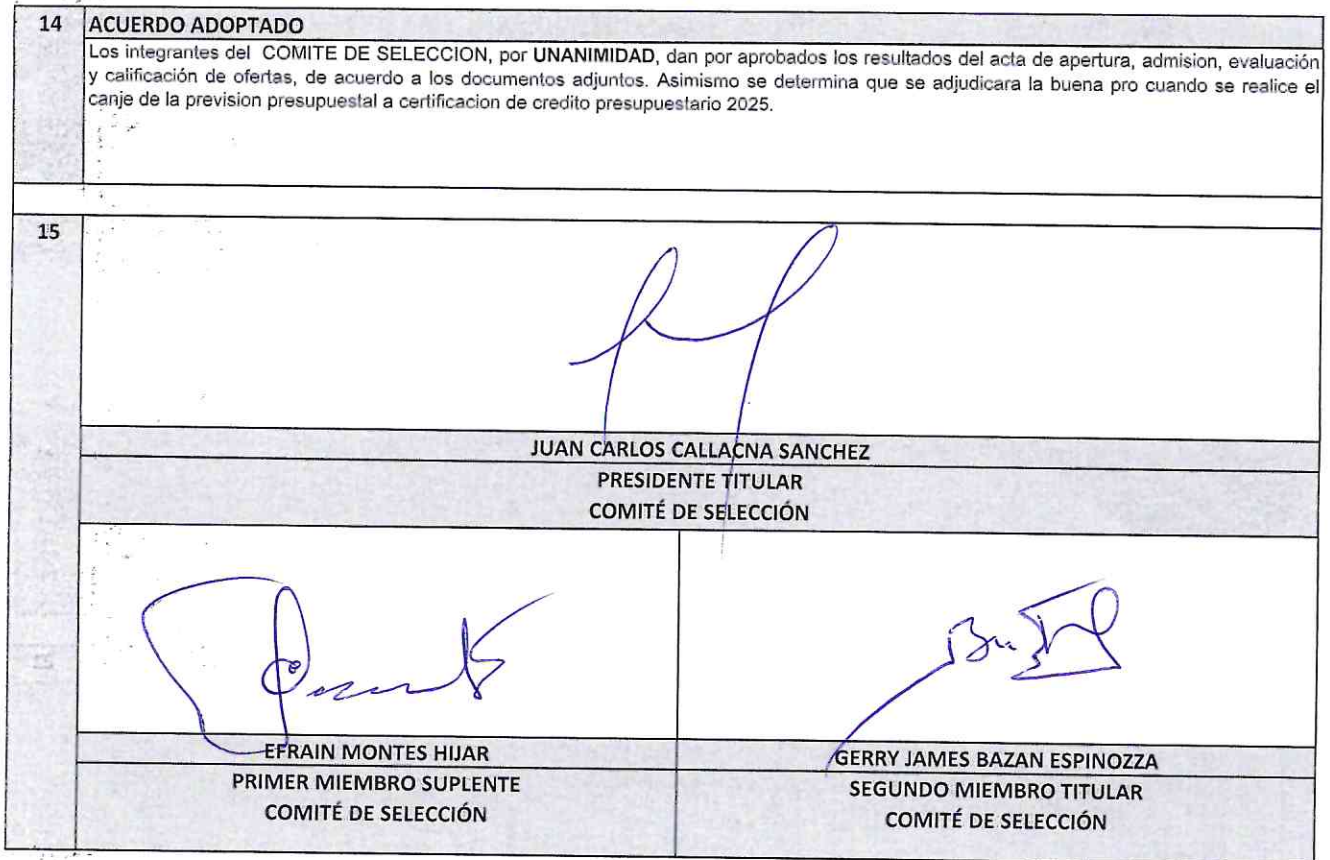 14 ACUERDO ADOPTADO
Los integrantes del COMITE DE SELECCION, por UNANIMIDAD, dan por aprobados los resultados del acta de apertura, admision, evaluación
y calificación de ofertas, de acuerdo a los documentos adjuntos. Asimismo se determina que se adjudicara la buena pro cuando se realice el
canje de la prevision presupuestal a certificacion de credito presupuestario 2025.
15
JUAN CARLOS CALLACNA SANCHEZ
PRESIDENTE TITULAR
COMITÉ DE SELECCIÓN
EFRAIN MONTES HIJAR
PRIMER MIEMBRO SUPLENTE
COMITÉ DE SELECCIÓN
GERRY JAMES BAZAN ESPINOZZA
SEGUNDO MIEMBRO TITULAR
COMITÉ DE SELECCIÓN